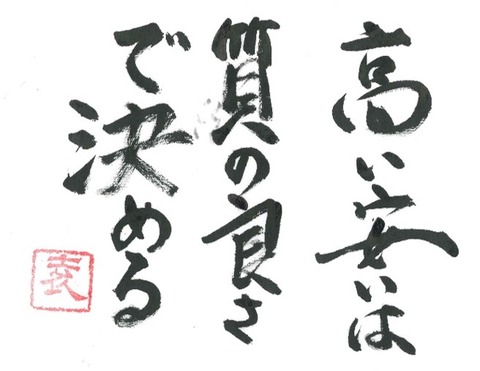 高い安いは
質の良さ
で決める